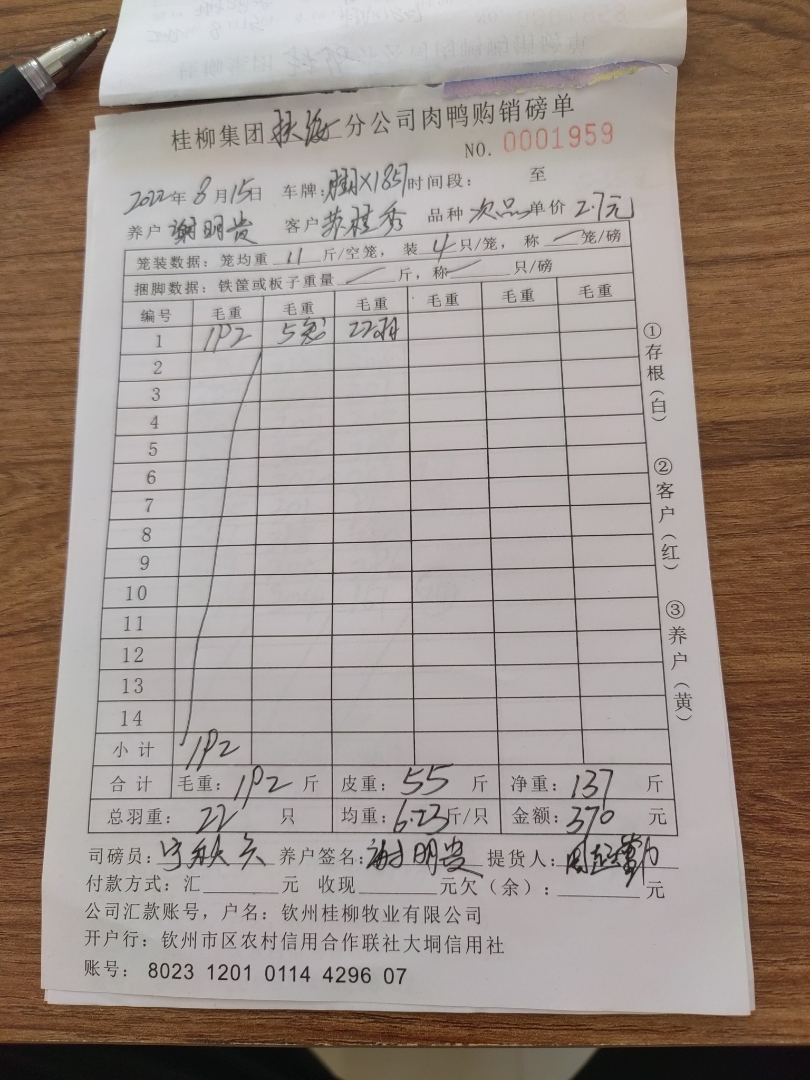 桂柳集团扶海分公司肉鸭购销磅单
NO. 0001959
2022年8月15日 车牌: X1857 时间段: 至
养户 谢明贵 客户 苏桂秀 品种 次品 单价 2.7元
笼装数据: 笼均重 11 斤/空笼, 装 4 只/笼, 称 / 笼/磅
捆脚数据: 铁筐或板子重量 / 斤, 称 / 只/磅
编号 毛重 毛重 毛重 毛重 毛重 毛重
1 192 5笼 22羽
2
3
4
5
6
7
8
9
10
11
12
13
14
小计 192
合计 毛重: 192 斤 皮重: 55 斤 净重: 137 斤
总羽重: 22 只 均重: 6.23斤/只 金额: 370 元
司磅员: 养户签名: 谢明贵 提货人:
付款方式: 汇 元 收现 元欠(余): 元
公司汇款账号, 户名: 钦州桂柳牧业有限公司
开户行: 钦州市区农村信用合作联社大垌信用社
账号: 8023 1201 0114 4296 07
①存根(白)
②客户(红)
③养户(黄)